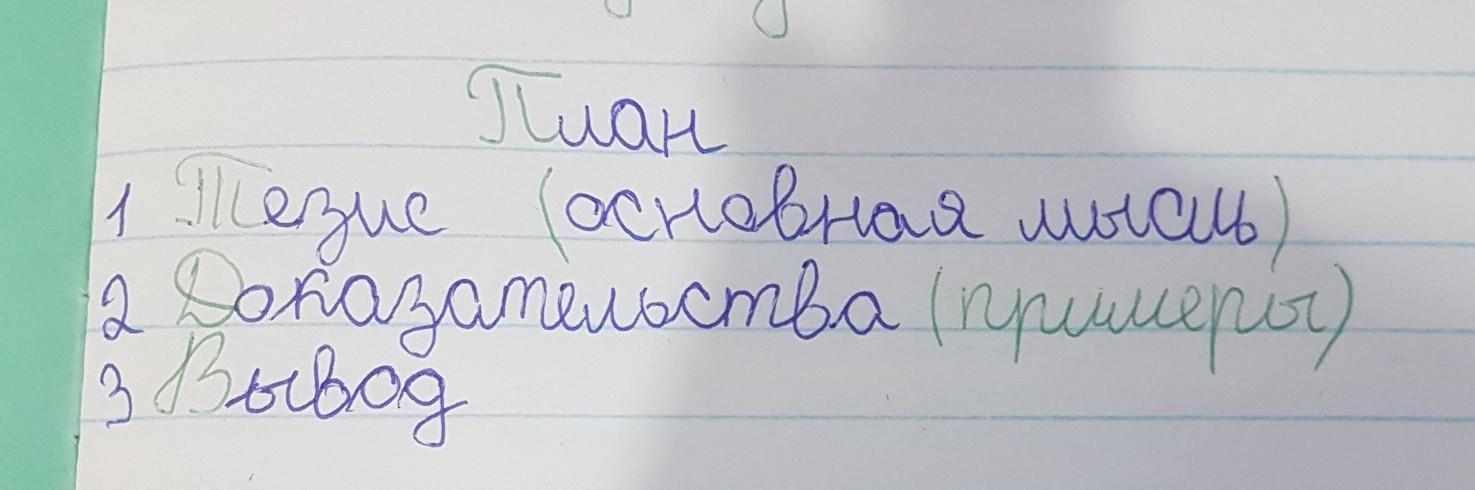 План
1 Тезис (основная мысль)
2 Доказательства (примеры)
3 Вывод